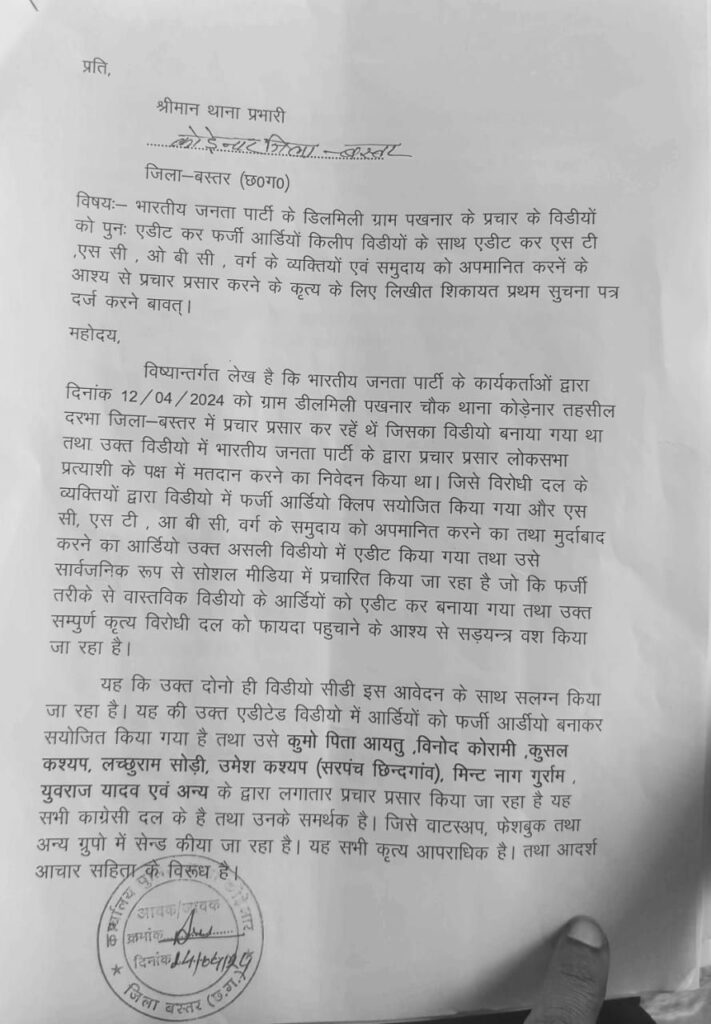 प्रति,
श्रीमान थाना प्रभारी
कोड़ेनार जिला – बस्तर
जिला–बस्तर (छ0ग0)
विषयः– भारतीय जनता पार्टी के डिलमिली ग्राम पखनार के प्रचार के विडीयों
को पुनः एडीट कर फर्जी आर्डियों किलीप विडीयों के साथ एडीट कर एस टी
,एस सी , ओ बी सी , वर्ग के व्यक्तियों एवं समुदाय को अपमानित करनें के
आश्य से प्रचार प्रसार करने के कृत्य के लिए लिखीत शिकायत प्रथम सुचना पत्र
दर्ज करने बावत्।
महोदय,
विष्यान्तर्गत लेख है कि भारतीय जनता पार्टी के कार्यकर्ताओं द्वारा
दिनांक 12/04/2024 को ग्राम डीलमिली पखनार चौक थाना कोड़ेनार तहसील
दरभा जिला–बस्तर में प्रचार प्रसार कर रहें थें जिसका विडीयो बनाया गया था
तथा उक्त विडीयो में भारतीय जनता पार्टी के द्वारा प्रचार प्रसार लोकसभा
प्रत्याशी के पक्ष में मतदान करने का निवेदन किया था। जिसे विरोधी दल के
व्यक्तियों द्वारा विडीयो में फर्जी आर्डियो क्लिप सयोजित किया गया और एस
सी, एस टी , आ बी सी, वर्ग के समुदाय को अपमानित करने का तथा मुर्दाबाद
करने का आर्डियो उक्त असली विडीयो में एडीट किया गया तथा उसे
सार्वजनिक रूप से सोशल मीडिया में प्रचारित किया जा रहा है जो कि फर्जी
तरीके से वास्तविक विडीयो के आर्डियों को एडीट कर बनाया गया तथा उक्त
सम्पुर्ण कृत्य विरोधी दल को फायदा पहुचाने के आश्य से सड़यन्त्र वश किया
जा रहा है।
यह कि उक्त दोनो ही विडीयो सीडी इस आवेदन के साथ सलग्न किया
जा रहा है। यह की उक्त एडीटेड विडीयो में आर्डियों को फर्जी आर्डीयो बनाकर
सयोजित किया गया है तथा उसे कुमो पिता आयतु ,विनोद कोरामी ,कुसल
कश्यप, लच्छुराम सोड़ी, उमेश कश्यप (सरपंच छिन्दगांव), मिन्ट नाग गुर्राम ,
युवराज यादव एवं अन्य के द्वारा लगातार प्रचार प्रसार किया जा रहा है यह
सभी काग्रेसी दल के है तथा उनके समर्थक है। जिसे वाटस्अप, फेशबुक तथा
अन्य ग्रुपो में सेन्ड कीया जा रहा है। यह सभी कृत्य आपराधिक है। तथा आदर्श
आचार सहिता के विरूध है।
कार्यालय
आवक/जावक
क्रमांक
दिनांक 14/04/24
जिला बस्तर (छ.ग.)